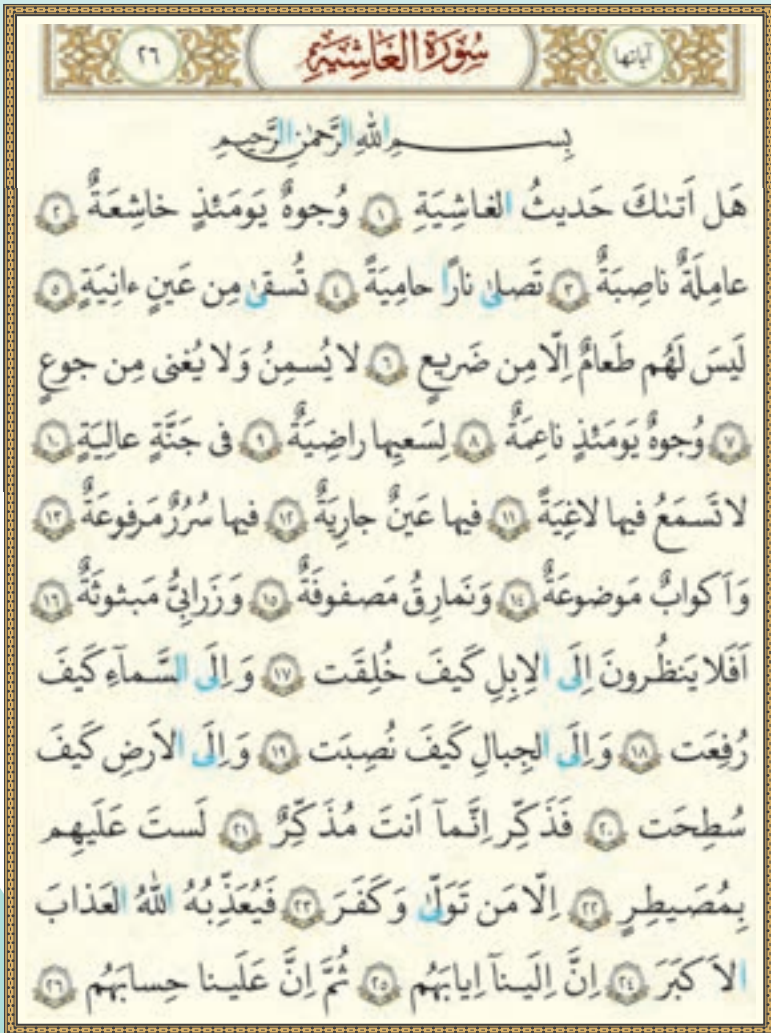 آياتها سُورَةُ الغَاشِيَةِ ٢٦
بِسمِ اللهِ الرَّحمٰنِ الرَّحيمِ
هَل اَتىٰكَ حَديثُ الغاشِيَةِ ١ وُجوهٌ يَومَئِذٍ خاشِعَةٌ ٢
عامِلَةٌ ناصِبَةٌ ٣ تَصلىٰ نارًا حامِيَةً ٤ تُسقىٰ مِن عَينٍ ءانِيَةٍ ٥
لَيسَ لَهُم طَعامٌ اِلّا مِن ضَريعٍ ٦ لا يُسمِنُ وَلا يُغنى مِن جوعٍ
٧ وُجوهٌ يَومَئِذٍ ناعِمَةٌ ٨ لِسَعيِها راضِيَةٌ ٩ فى جَنَّةٍ عالِيَةٍ ١٠
لا تَسمَعُ فيها لاغِيَةً ١١ فيها عَينٌ جارِيَةٌ ١٢ فيها سُرُرٌ مَرفوعَةٌ ١٣
وَاَكوابٌ مَوضوعَةٌ ١٤ وَنَمارِقُ مَصفوفَةٌ ١٥ وَزَرابِىُّ مَبثوثَةٌ ١٦
اَفَلا يَنظُرونَ اِلَى الاِبِلِ كَيفَ خُلِقَت ١٧ وَاِلَى السَّماۤءِ كَيفَ
رُفِعَت ١٨ وَاِلَى الجِبالِ كَيفَ نُصِبَت ١٩ وَاِلَى الاَرضِ كَيفَ
سُطِحَت ٢٠ فَذَكِّر اِنَّماۤ اَنتَ مُذَكِّرٌ ٢١ لَستَ عَلَيهِم
بِمُصَيطِرٍ ٢٢ اِلّا مَن تَوَلّىٰ وَكَفَرَ ٢٣ فَيُعَذِّبُهُ اللهُ العَذابَ
الاَكبَرَ ٢٤ اِنَّ اِلَيناۤ اِيابَهُم ٢٥ ثُمَّ اِنَّ عَلَينا حِسابَهُم ٢٦